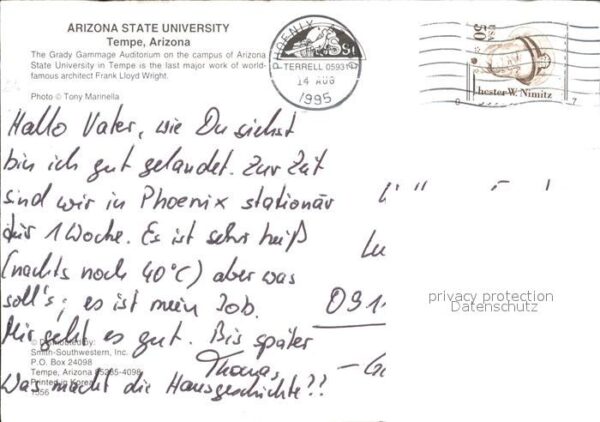 ARIZONA STATE UNIVERSITY
Tempe, Arizona
The Grady Gammage Auditorium on the campus of Arizona
State University in Tempe is the last major work of world-
famous architect Frank Lloyd Wright.
Photo © Tony Marinella
PHOENIX
TERRELL 05931
14 AUG
1995
USA
50
Chester W. Nimitz
Hallo Vater, wie Du siehst
bin ich gut gelandet. Zur Zeit
sind wir in Phoenix stationär
für 1 Woche. Es ist sehr heiß
(nachts noch 40°C) aber was
soll's; es ist mein Job.
Mir geht es gut. Bis später
Thomas
Was macht die Hausgeschichte??
091
privacy protection
Datenschutz
© Distributed by:
Smith-Southwestern, Inc.
P.O. Box 24098
Tempe, Arizona 85285-4098
Printed in Korea
7556